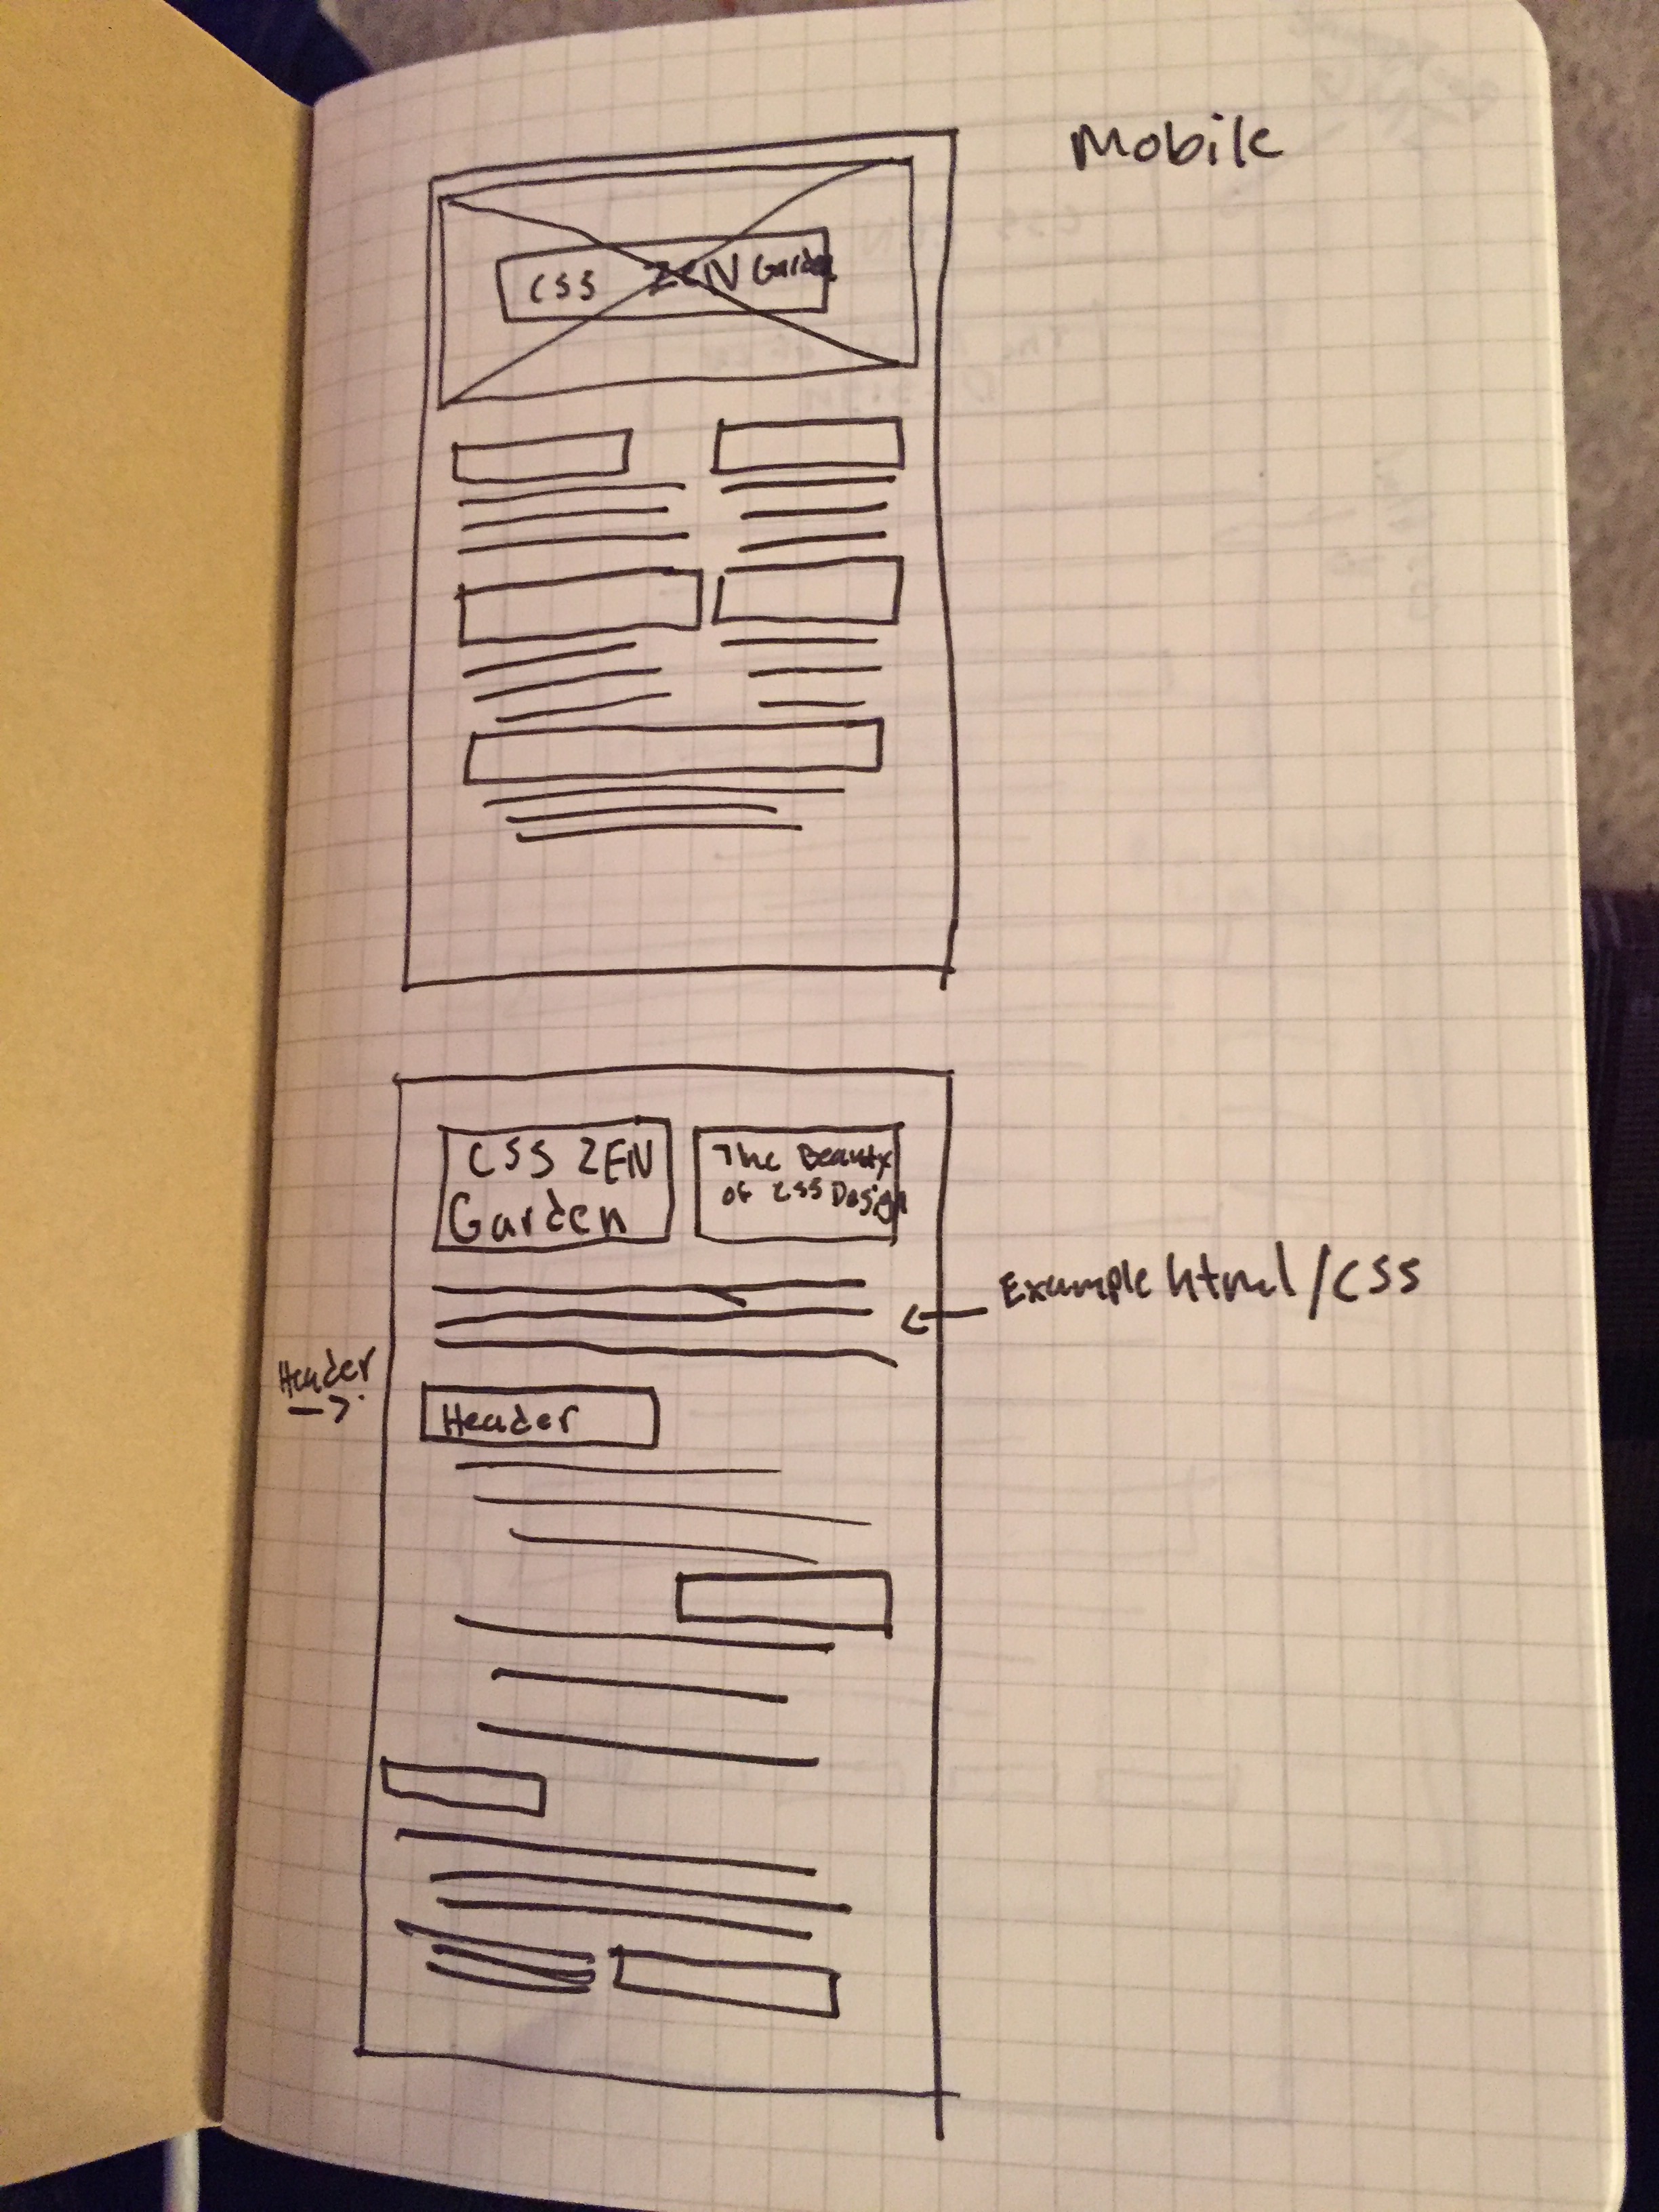 Mobile
CSS ZEN Garden
CSS ZEN
Garden
The Beauty
of CSS Design
Example html/CSS
Header
Header